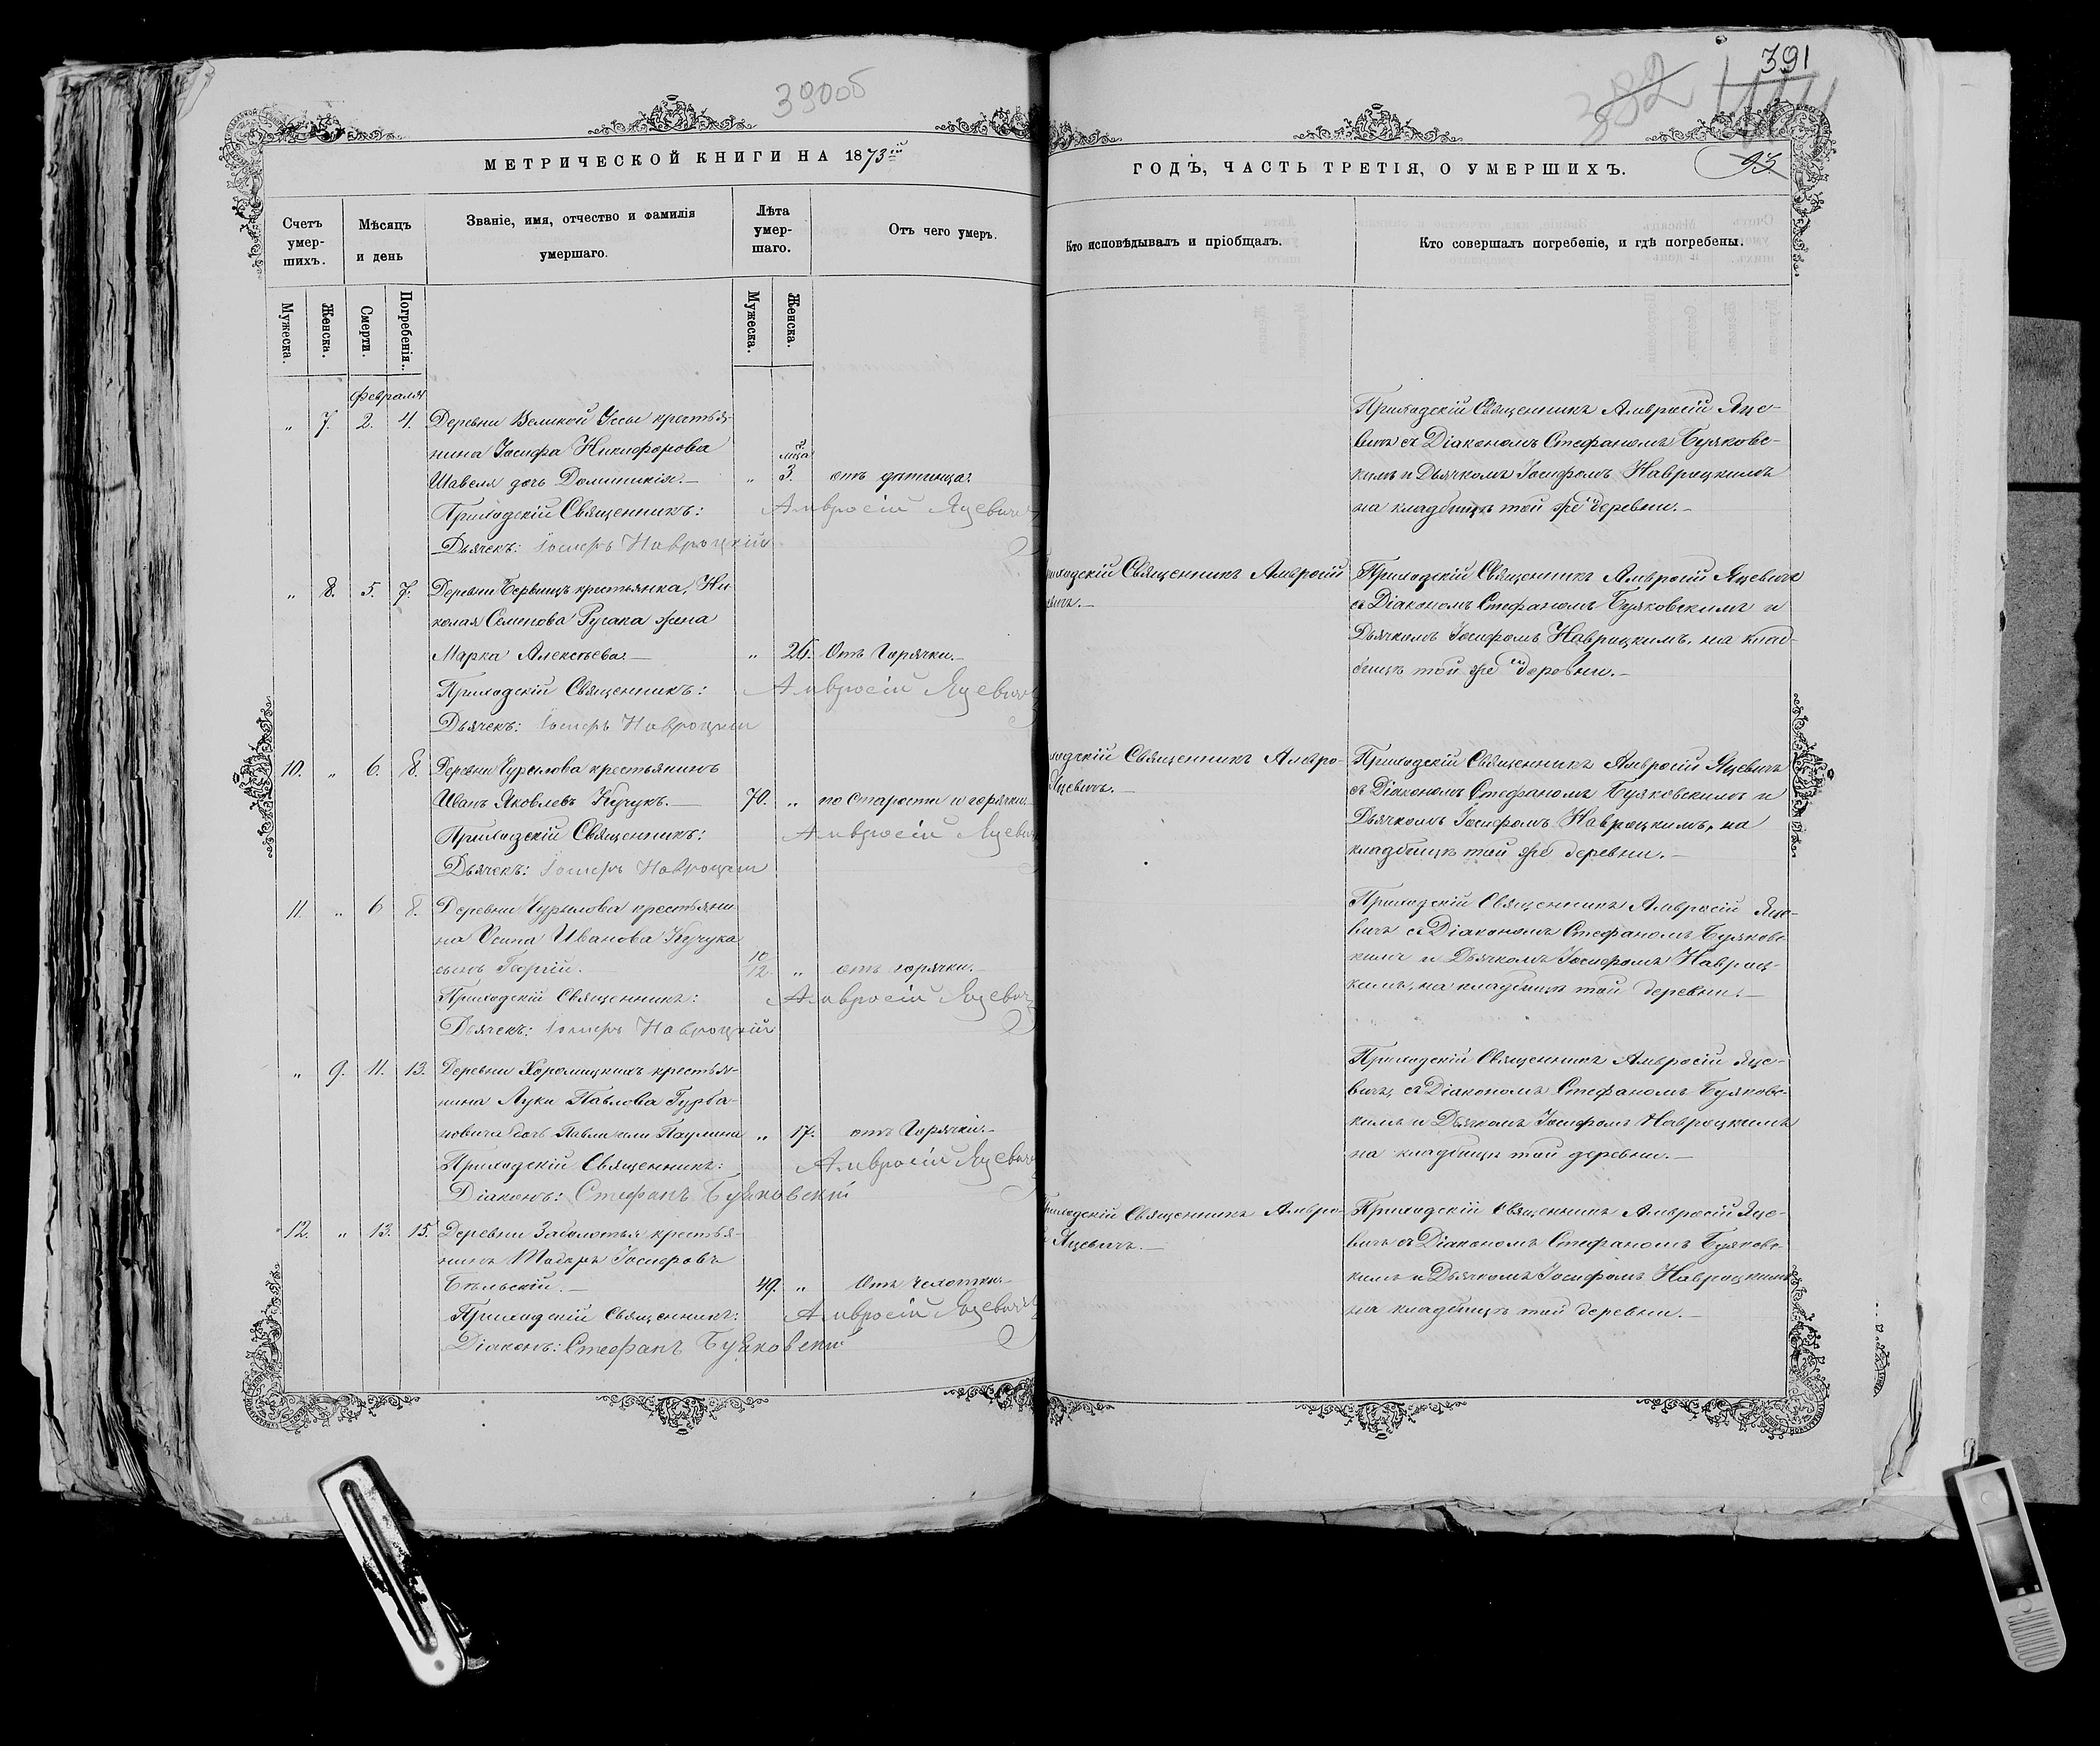 390об
391
382
93
МЕТРИЧЕСКОЙ КНИГИ НА 1873ій
ГОДЪ, ЧАСТЬ ТРЕТІЯ, О УМЕРШИХЪ.
Счетъ умер-шихъ.
Мѣсяцъ и день
Званіе, имя, отчество и фамилія умершаго.
Лѣта умер-шаго.
Отъ чего умеръ.
Кто исповѣдывалъ и пріобщалъ.
Кто совершалъ погребеніе, и гдѣ погребены.
Мужеска.
Женска.
Смерти.
Погребенія.
Мужеска.
Женска.
Февраля
„ 7. 2. 4. Деревни Великой Уссы крестья-
нина Іосифа Никифорова
Шавеля дочь Доминикія.— „ мца 3. отъ
Приходскій Священникъ: Амвросій Яцевичъ
Дьячекъ: Іосифъ Навроцкій
Приходскій Священникъ Амвросій Яце-
вичъ съ Діакономъ Стефаномъ Бу
ковс-
кимъ и Дьячкомъ Іосифомъ Навроцкимъ
на кладбищѣ той же деревни.—
„ 8. 5. 7. Деревни крестьянка, Ни-
колая Семенова Русака жена
Марка Алексѣева.— „ 26. Отъ Горячки.—
Приходскій Священникъ: Амвросій Яцевичъ
Дьячекъ: Іосифъ Навроцкій
Приходскій Священникъ Амвросій
Яцевичъ.—
Приходскій Священникъ Амвросій Яцевичъ
съ Діакономъ Стефаномъ Буяковскимъ и
Дьячкомъ Іосифомъ Навроцкимъ, на клад-
бищѣ той же деревни.—
10. „ 6. 8. Деревни Чурилова крестьянинъ
Иванъ Яковлевъ Кучукъ.— 70. „ по старости и горячки
Приходскій Священникъ: Амвросій Яцевичъ
Дьячекъ: Іосифъ Навроцкій
Приходскій Священникъ Амвро-
Яцевичъ.—
Приходскій Священникъ Амвросій Яцевичъ
съ Діакономъ Стефаномъ Буяковскимъ и
Дьячкомъ Іосифомъ Навроцкимъ, на
кладбищѣ той же деревни.—
11. „ 6 8. Деревни Чурилова крестьяни-
на Осипа Иванова Кучука
сынъ Георгій.— 10/12. „ отъ горячки.—
Приходскій Священникъ: Амвросій Яцевичъ
Дьячекъ: Іосифъ Навроцкій
Приходскій Священникъ Амвросій Яце-
вичъ съ Діакономъ Стефаномъ Буяковс-
кимъ и Дьячкомъ Іосифомъ Навроц-
кимъ, на кладбищѣ той деревни.—
„ 9. 11. 13. Деревни Хоромицкихъ крестья-
нина Луки Павлова Гурба-
новича дочь Павла или Паулина „ 17. отъ Горячки.—
Приходскій Священникъ: Амвросій Яцевичъ
Діаконъ: Стефанъ Буяковскій
Приходскій Священникъ Амвросій Яце-
вичъ, съ Діакономъ Стефаномъ Буяковс-
кимъ и Дьячкомъ Іосифомъ Навроцкимъ
на кладбищѣ той деревни.—
12. „ 13. 15. Деревни Заболотья крестья-
нинъ Іосифовъ
Бѣльскій.— 49. „ Отъ чахотки.—
Приходскій Священникъ: Амвросій Яцевичъ
Діаконъ: Стефанъ Буяковскій
Приходскій Священникъ Амвро-
Яцевичъ.—
Приходскій Священникъ Амвросій Яце-
вичъ съ Діакономъ Стефаномъ Буяковс-
кимъ и Дьячкомъ Іосифомъ Навроцкимъ
на кладбищѣ той деревни.—